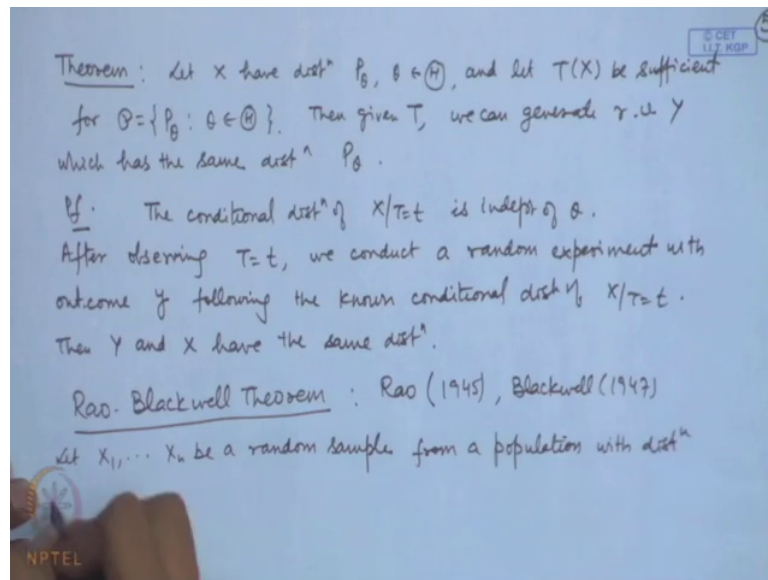 © CET
I.I.T. KGP
Theorem : Let X have distⁿ P_θ, θ ∈ Ⓗ, and let T(X) be sufficient
for 𝒫 = { P_θ : θ ∈ Ⓗ }. Then given T, we can generate r.v. Y
which has the same distⁿ P_θ .
Pf. The conditional distⁿ of X/T=t is indept of θ .
After observing T=t, we conduct a random experiment with
outcome y following the known conditional dist of X/T=t .
Then Y and X have the same distⁿ.
Rao-Blackwell Theorem : Rao (1945), Blackwell (1947)
Let X₁, ... Xₙ be a random sample from a population with distⁿ
NPTEL